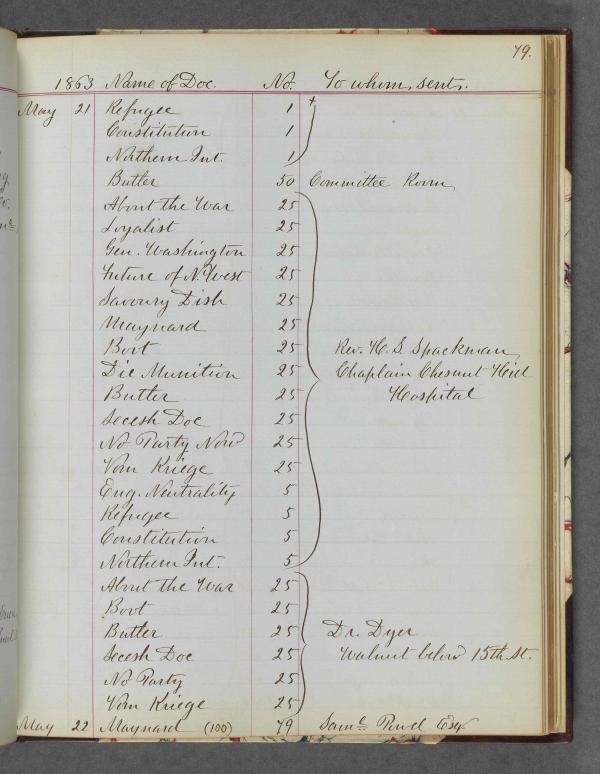 79.
1863 Name of Doc. No. To whom sent.
May 21 Refugee 1 +
Constitution 1
Northern Int. 1
Butler 50 Committee Room
About the War 25
Loyalist 25
Gen. Washington 25
Future of N. West 25
Savoury Dish 25
Maynard 25
Bovt 25 Rev. H. S. Spackman
Die Munition 25 Chaplain Chesnut Hill
Butler 25 Hospital
Secesh Doc 25
No Party Now 25
Vom Kriege 25
Eng. Neutrality 5
Refugee 5
Constitution 5
Northern Int. 5
About the War 25
Bovt 25
Butler 25 Dr. Dyer
Secesh Doc 25 Walnut below 15th St.
No Party 25
Vom Kriege 25
May 22 Maynard (100) 79 Saml. Esq